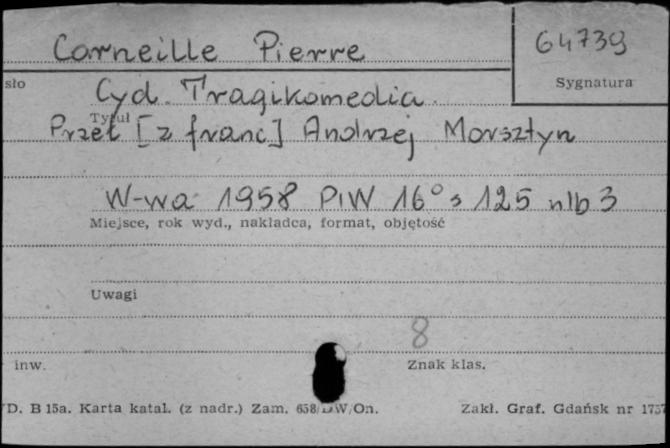 Corneille Pierre
64739
Sygnatura
sło
Cyd. Tragikomedia.
Tytuł
Przeł [z franc] Andrzej Morsztyn
W-wa 1958 PIW 16° s 125 nlb 3
Miejsce, rok wyd., nakładca, format, objętość
Uwagi
8
inw.
Znak klas.
D. B 15a. Karta katal. (z nadr.) Zam. 658/DW/On.
Zakł. Graf. Gdańsk nr 1737